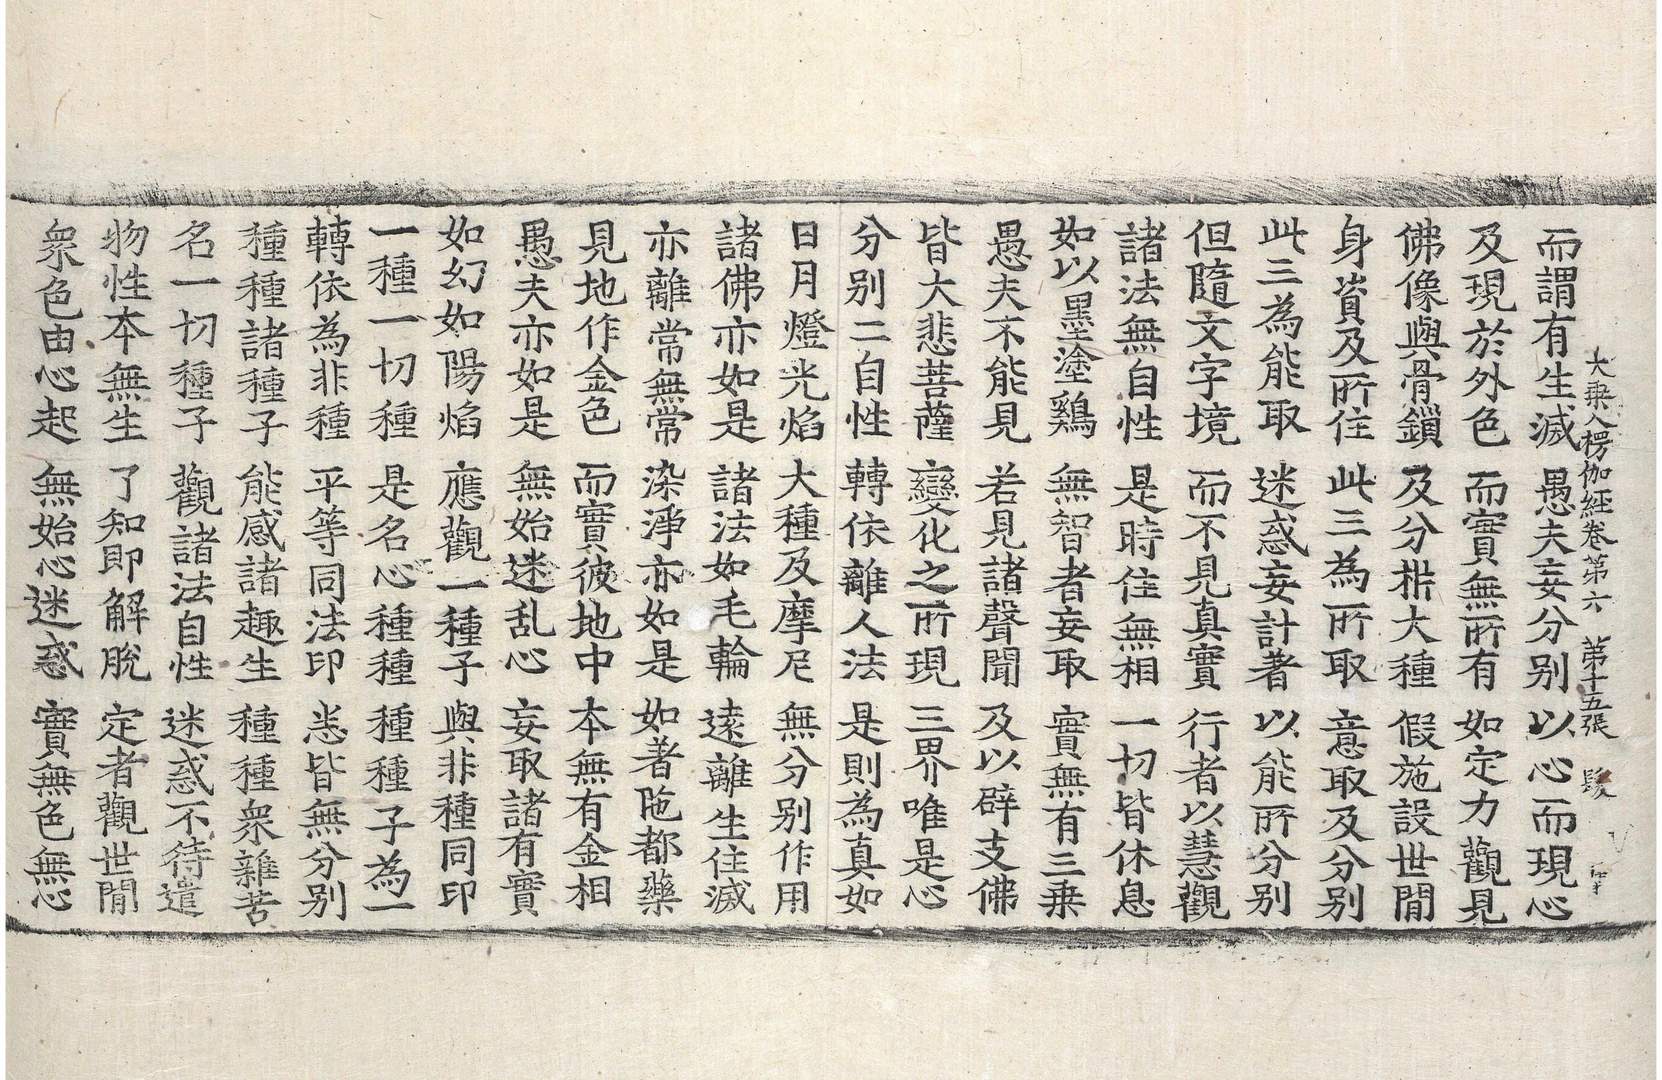 大乘入楞伽經卷第六　第十五張　髮
而謂有生滅　愚夫妄分别　以心而現心
及現於外色　而實無所有　如定力觀見
佛像與骨鎖　及分㭊大種　假施設世間
身資及所住　此三為所取　意取及分别
此三為能取　迷惑妄計著　以能所分别
但隨文字境　而不見真實　行者以慧觀
諸法無自性　是時住無相　一切皆休息
如以墨塗鷄　無智者妄取　實無有三乗
愚夫不能見　若見諸聲聞　及以辟支佛
皆大悲菩薩　變化之所現　三界唯是心
分别二自性　轉依離人法　是則為真如
日月燈光焰　大種及摩尼　無分别作用
諸佛亦如是　諸法如毛輪　遠離生住滅
亦離常無常　染淨亦如是　如著陁都藥
見地作金色　而實彼地中　本無有金相
愚夫亦如是　無始迷乱心　妄取諸有實
如幻如陽焰　應觀一種子　與非種同印
一種一切種　是名心種種　種種子為一
轉依為非種　平等同法印　悉皆無分别
種種諸種子　能感諸趣生　種種衆雜苦
名一切種子　觀諸法自性　迷惑不待遣
物性本無生　了知即解脫　定者觀世間
衆色由心起　無始心迷惑　實無色無心